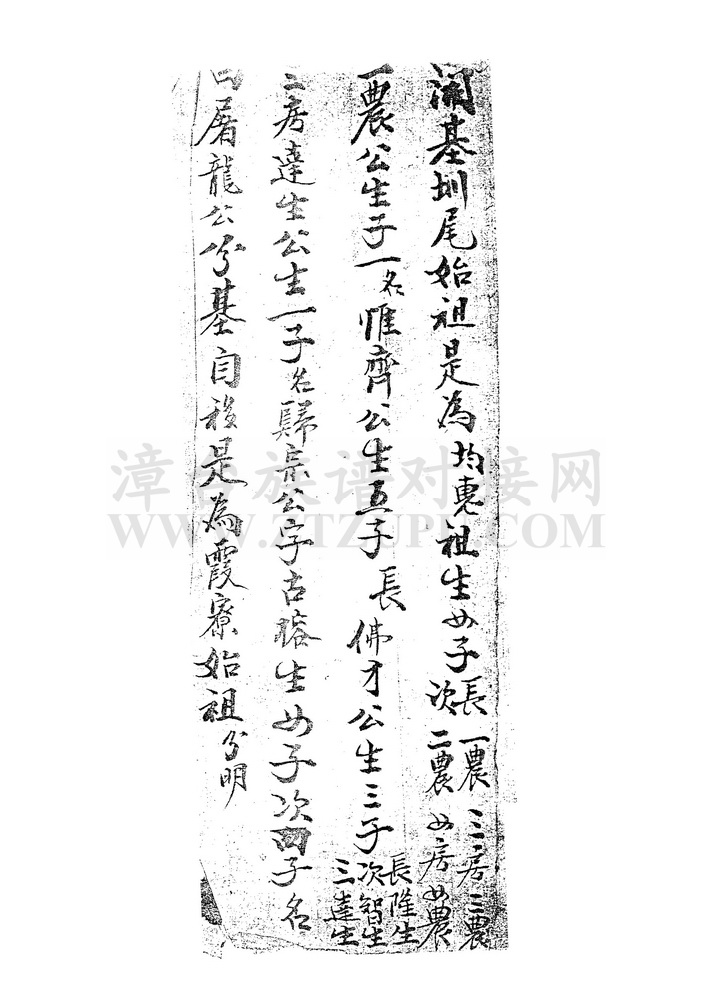 開基圳尾始祖是為均惠祖生四子長一農三房三農
次二農四房四農
一農公生子一名惟齊公生五子長佛才公生三子長隆生
次智生
三達生
二房達生公生一子名歸宗公字古榕生四子次四子名
曰屠龍公分基自移是為霞寮始祖分明
漳台族谱对接网
WWW.ZTZUPU.COM